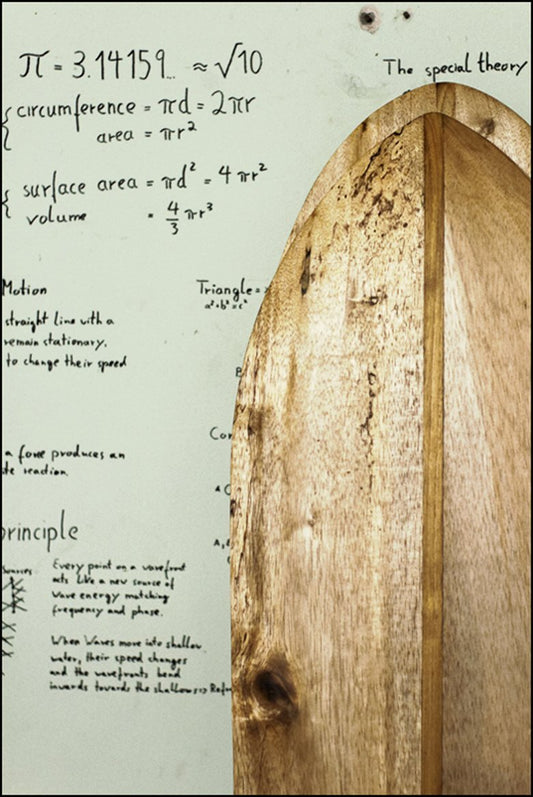 π = 3.14159... ≈ √10
The special theory
circumference = πd = 2πr
area = πr²
surface area = πd² = 4πr²
volume = 4/3 πr³
Motion
Triangle =
a²+b²=c²
straight line with a
remain stationary.
to change their speed
a force produces an
reaction.
principle
Sources
Every point on a wavefront
acts like a new source of
wave energy matching
frequency and phase.
When Waves move into shallow
water, their speed changes
and the wavefronts bend
inwards towards the shallows =>